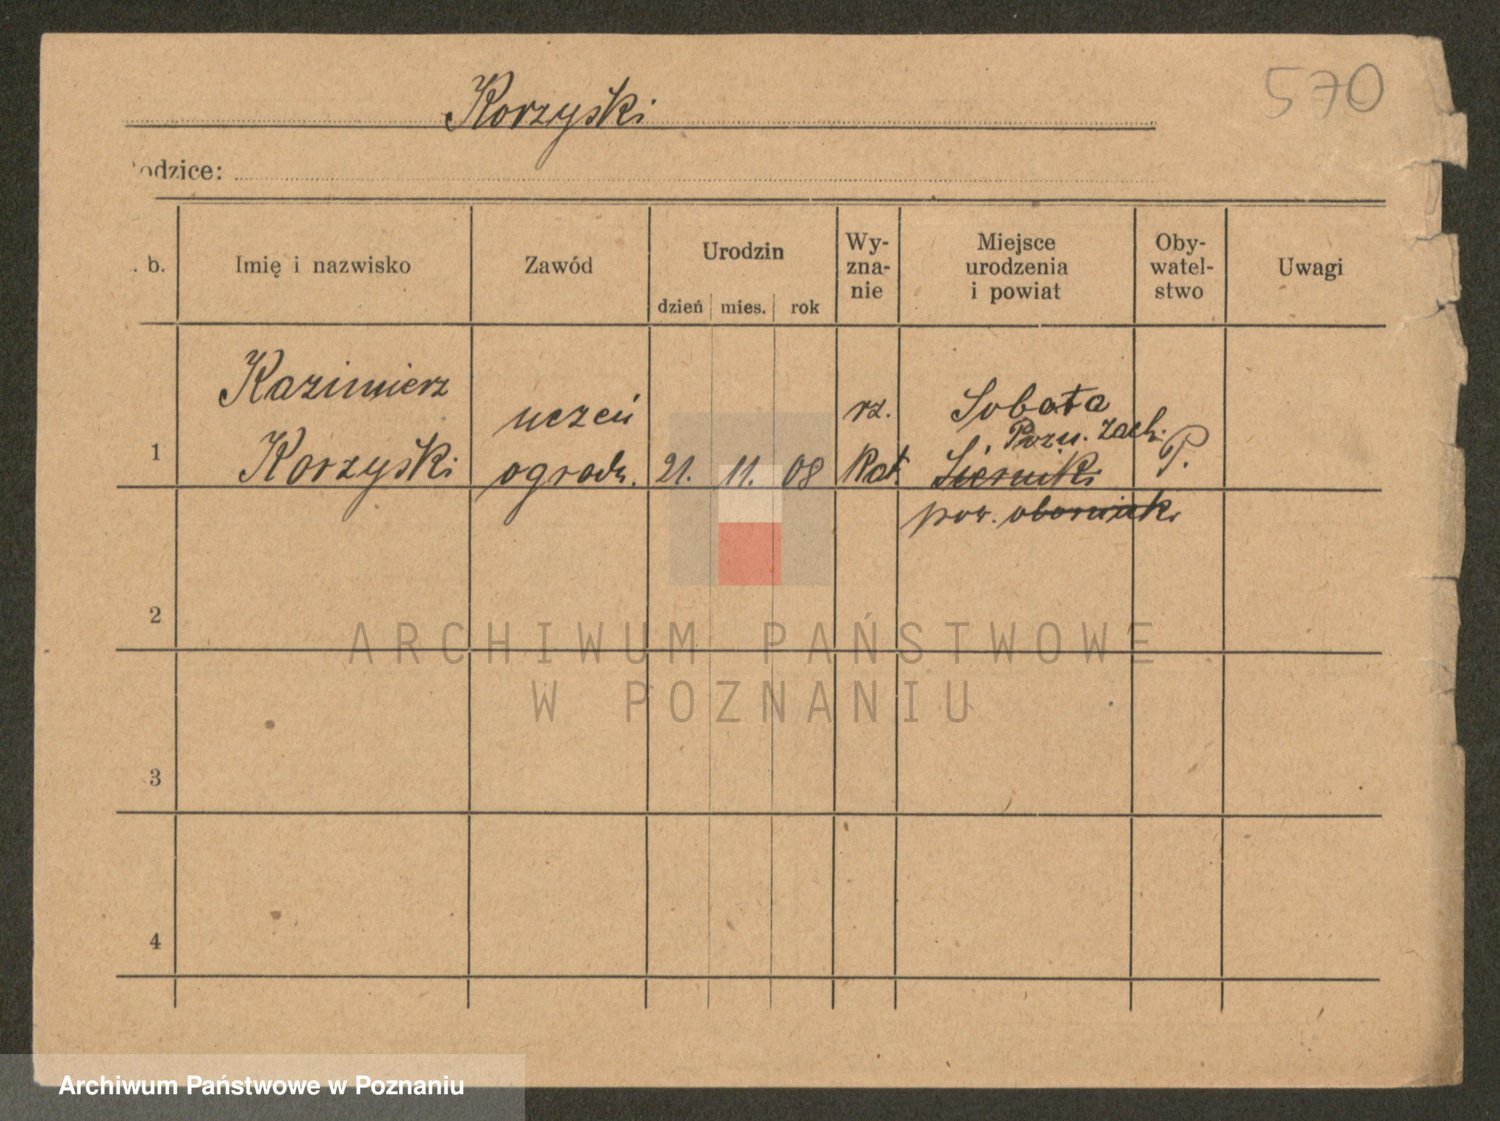 570
Korzyski
odzice:
. b.
Imię i nazwisko
Zawód
Urodzin
dzień mies. rok
Wy-
zna-
nie
Miejsce
urodzenia
i powiat
Oby-
watel-
stwo
Uwagi
1
Kazimierz
Korzyski
uczeń
ogrodn.
21. 11. 08
rz.
kat.
Sobota
Pozn. zach.
pow. obornicki
P.
2
3
4
ARCHIWUM PAŃSTWOWE
W POZNANIU
Archiwum Państwowe w Poznaniu